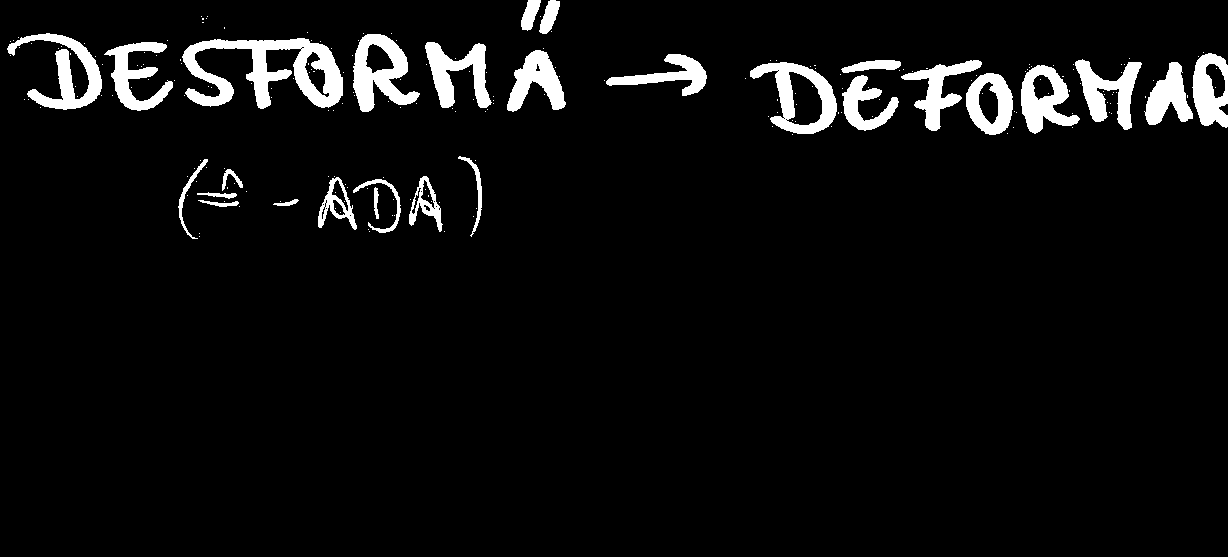 DESFORMÄ → DEFORMAR
(≙ - ADA)